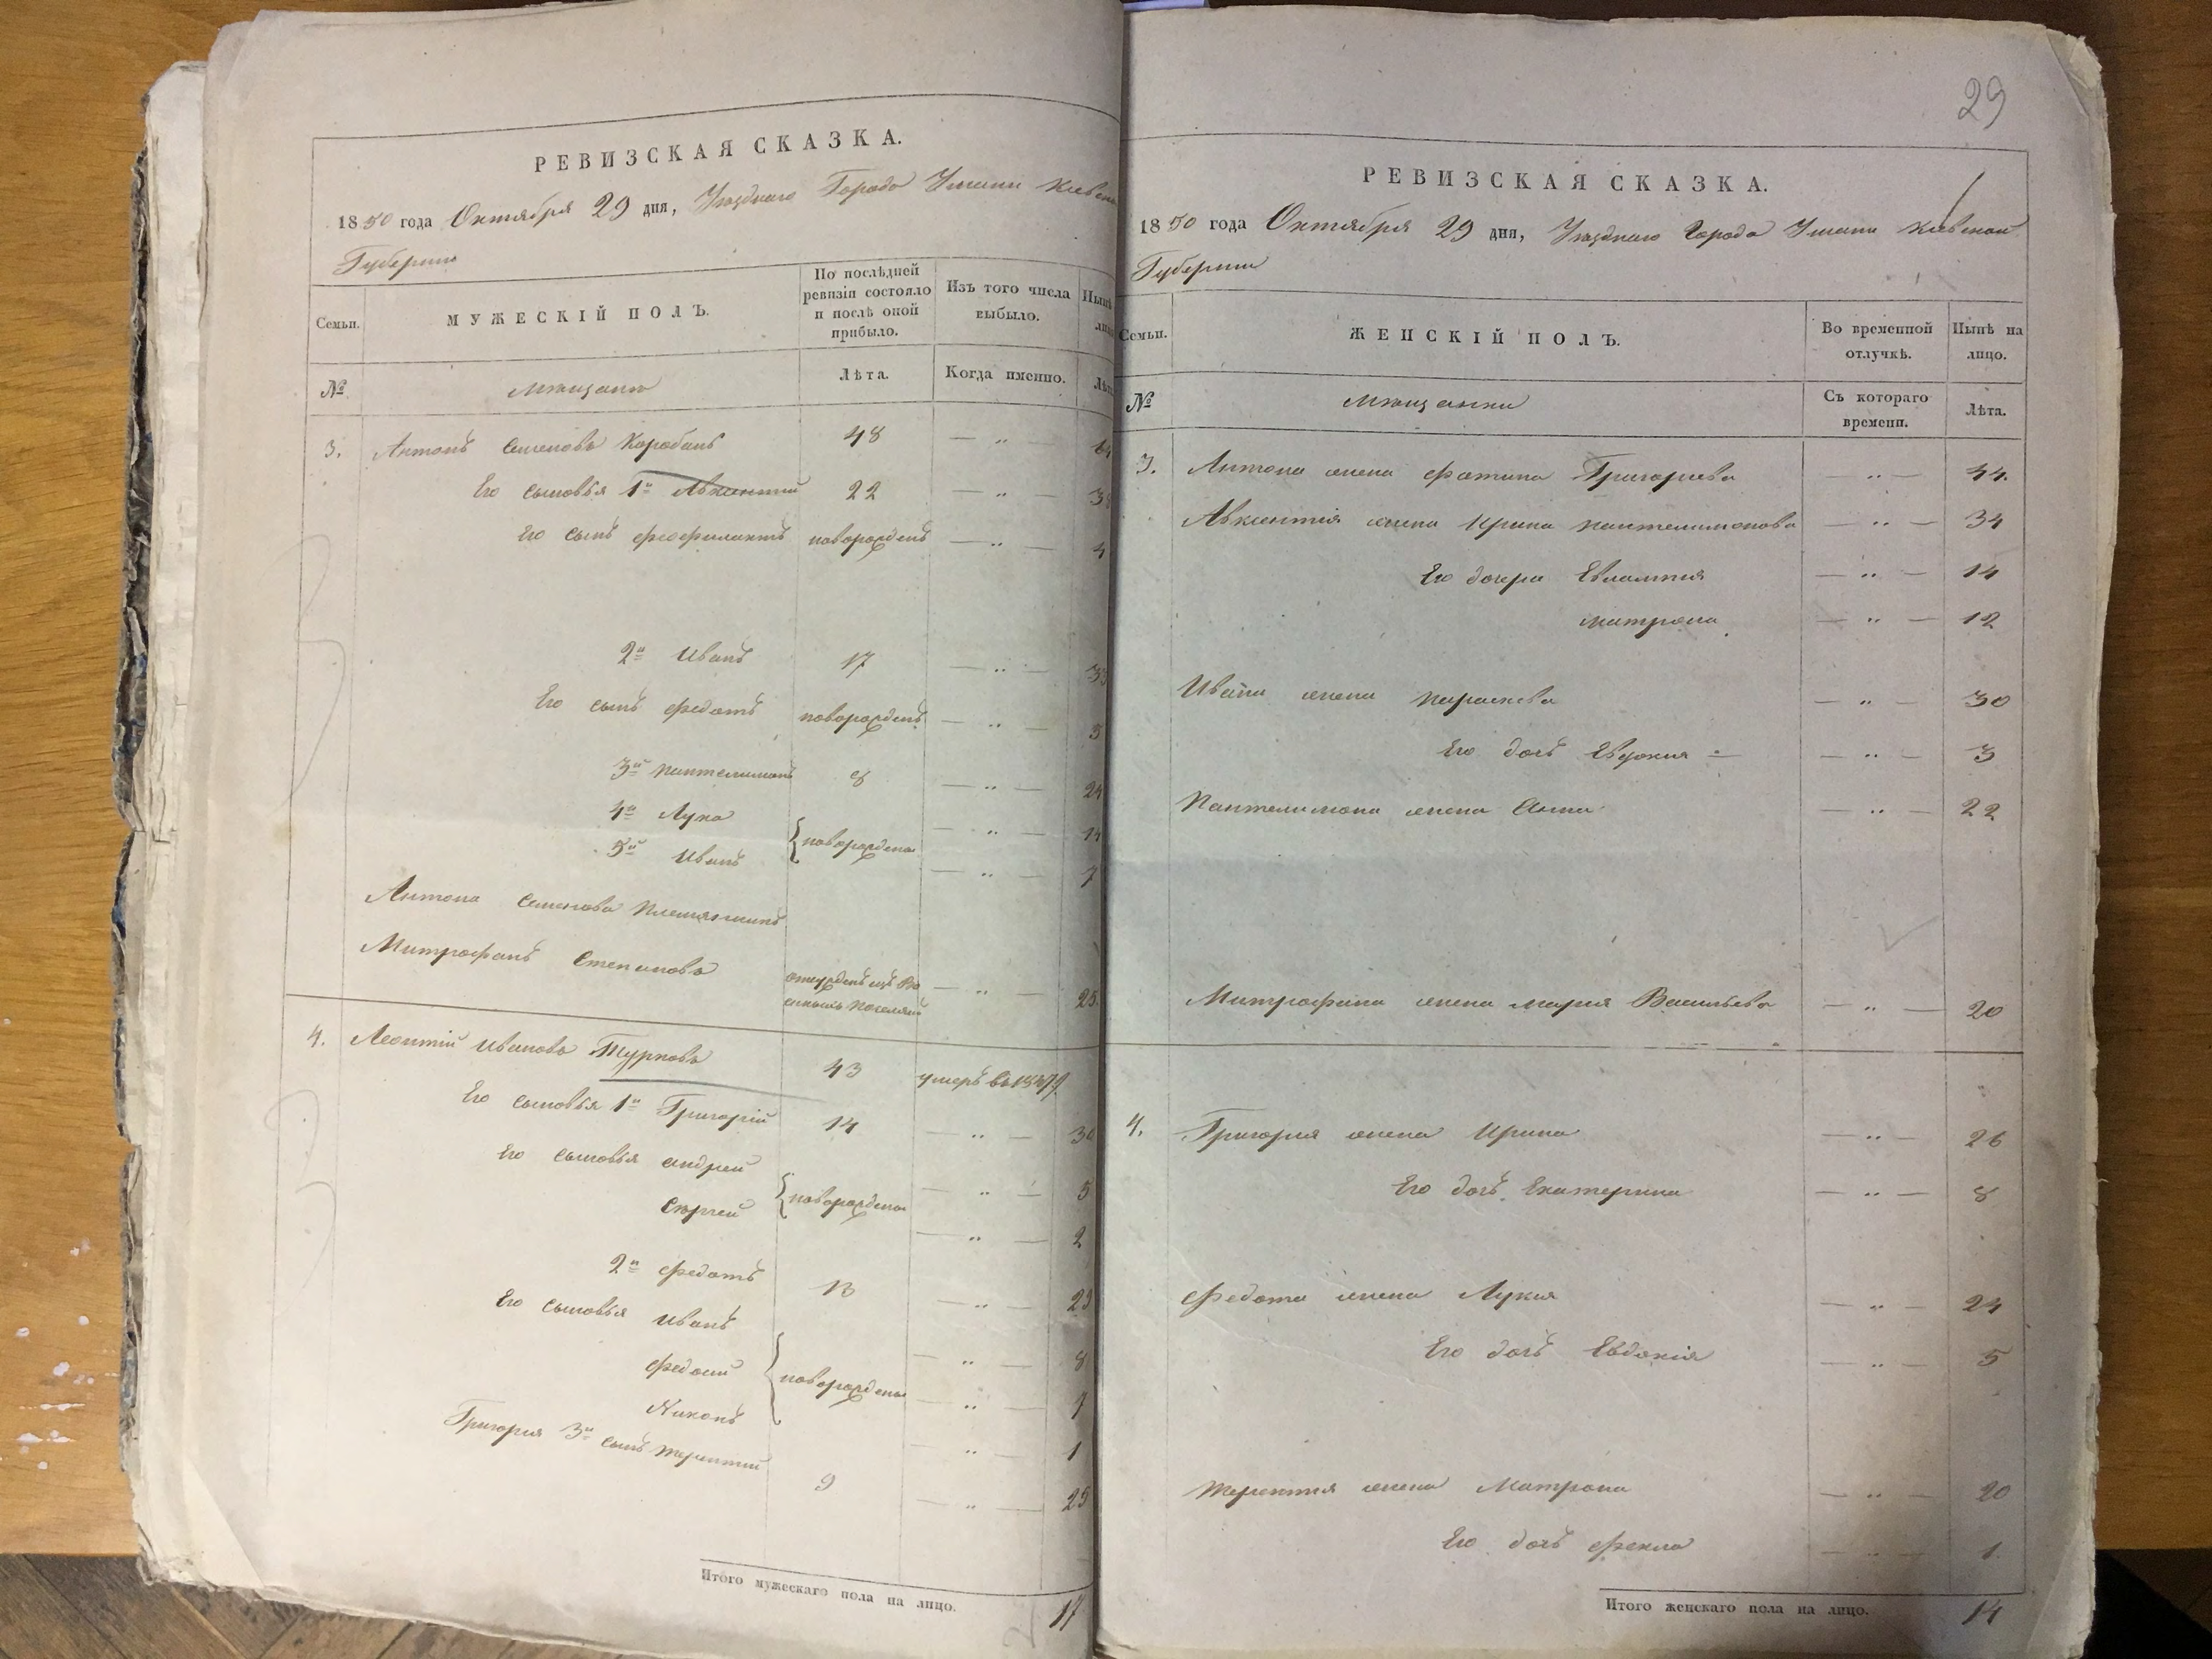 РЕВИЗСКАЯ СКАЗКА.
1850 года Октября 29 дня, Уѣзднаго Города Умани Кіевской
Губерніи
Семьи.
МУЖЕСКІЙ ПОЛЪ.
По послѣдней ревизіи состояло и послѣ оной прибыло.
Изъ того числа выбыло.
№
Мѣщане
Лѣта.
Когда именно.
3. Антонъ Семеновъ Карабанъ 48 — " 64
Его сыновья 1й Авксентій 22 — " — 38
Его сынъ Феофилактъ новорожденъ — " — 4
2й Иванъ 17 — " — 33
Его сынъ Федотъ новорожденъ — " — 5
3й Пантелимонъ 8 — " — 24
4й Лука { новорождены — " — 14
5й Иванъ — " — 7
Антона Семенова племянникъ
Митрофанъ Степановъ — " — 25
4. Леонтій Ивановъ Турковъ 43 умеръ въ 1847 г.
Его сыновья 1й Григорій 14 — " — 30
Его сыновья Андрей { новорождены — " — 5
Сергей — " — 2
2й Федотъ 13 — " 29
Его сыновья Иванъ { новорождены — " — 8
Федосій — " — 7
Никонъ — " — 1
Григорія 3й сынъ Терентій 9 — " — 25
Итого мужескаго пола на лицо. 17
29
РЕВИЗСКАЯ СКАЗКА.
1850 года Октября 29 дня, Уѣзднаго Города Умани Кіевской
Губерніи
Семьи.
ЖЕНСКІЙ ПОЛЪ.
Во временной отлучкѣ.
Нынѣ на лицо.
№
Мѣщанки
Съ котораго времени.
Лѣта.
3. Антона жена Фотина Григорьева — " — 44.
Авксентія жена Ирина Пантелимонова — " — 34
Его дочери Евлампія — " — 14
Матрона — " — 12
Ивана жена Параскева — " — 30
Его дочь Евдокия — " — 3
Пантелимона жена Анна — " — 22
Митрофана жена Мария Васильева — " — 20
4. Григория жена Ирина — " — 26
Его дочь Екатерина — " — 8
Федота жена Лукия — " — 24
Его дочь Евдокія — " — 5
Терентия жена Матрона — " — 20
Его дочь Фекла — " — 1
Итого женскаго пола на лицо. 14